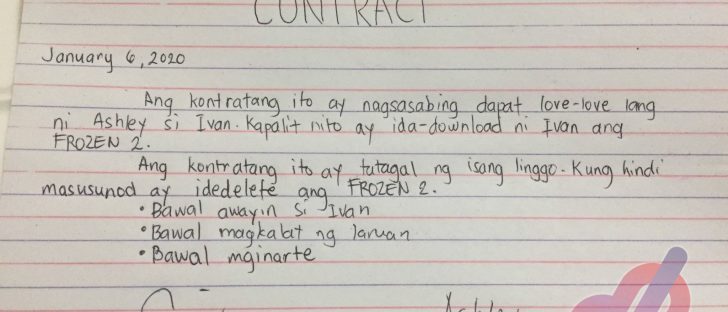 CONTRACT
January 6, 2020
Ang kontratang ito ay nagsasabing dapat love-love lang
ni Ashley si Ivan. Kapalit nito ay ida-download ni Ivan ang
FROZEN 2.
Ang kontratang ito ay tatagal ng isang linggo. Kung hindi
masusunod ay idedelete ang FROZEN 2.
• Bawal awayin si Ivan
• Bawal magkalat ng laruan
• Bawal mginarte